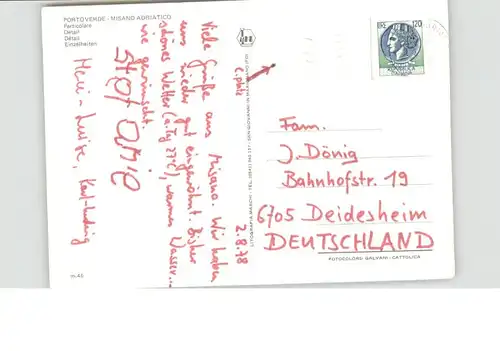 PORTOVERDE - MISANO ADRIATICO
Particolare
Detail
Détail
Einzelheiten
2.8.78
Viele Grüße aus Misano. Wir haben
uns wieder gut eingewöhnt. Bisher
schönes Wetter (a. Tg 27°C), warmes Wasser...
wie gewünscht.
Luise, Karl-Ludwig
m.45
120
Fam.
J. Dönig
Bahnhofstr. 19
6705 Deidesheim
DEUTSCHLAND
FOTOCOLORO GALVANI - CATTOLICA